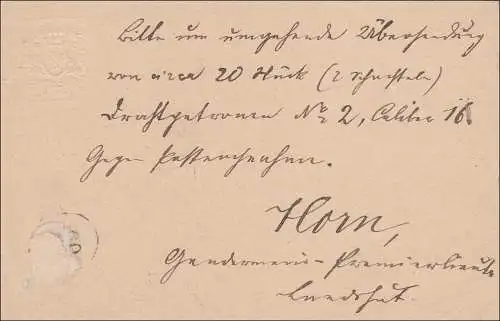 Bitte um umgehende Übersendung
von circa 20 Stück (2 Schachteln)
Drahtpatronen No 2, Caliber 16
Gegen Postnachnahme.
Horn,
Gendarmerie-Premierlieute
Landshut.